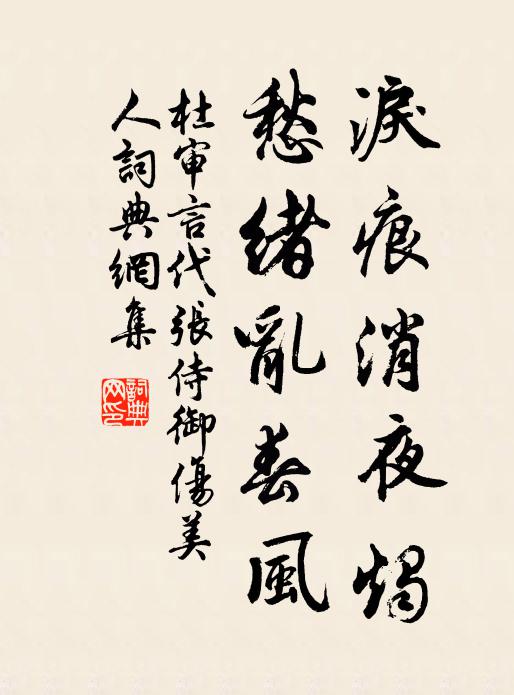 淚痕消夜燭
愁緒亂春風
杜審言代張侍御傷美
人詞典網集
詞典
网印